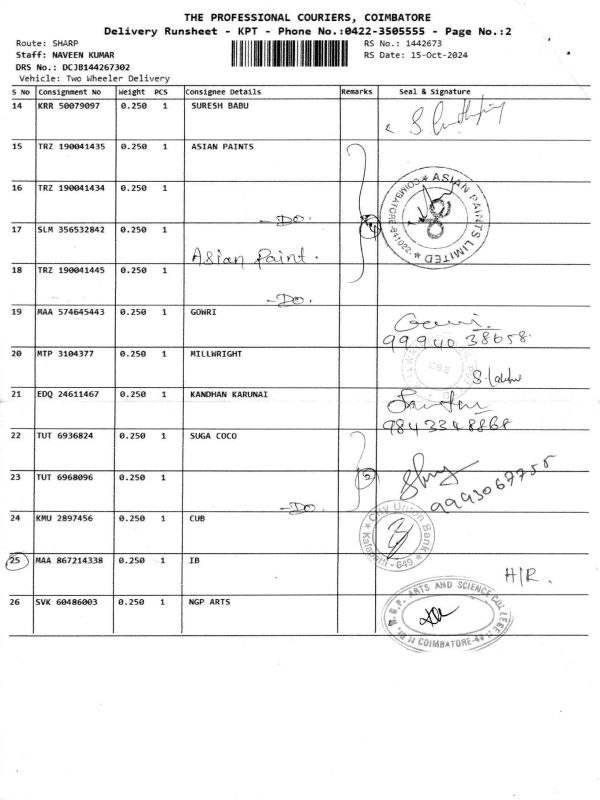 THE PROFESSIONAL COURIERS, COIMBATORE
Delivery Runsheet - KPT - Phone No.:0422-3505555 - Page No.:2
Route: SHARP RS No.: 1442673
Staff: NAVEEN KUMAR RS Date: 15-Oct-2024
DRS No.: DCJB144267302
Vehicle: Two Wheeler Delivery
S No Consignment No Weight PCS Consignee Details Remarks Seal & Signature
14 KRR 50079097 0.250 1 SURESH BABU
15 TRZ 190041435 0.250 1 ASIAN PAINTS
16 TRZ 190041434 0.250 1 -DO. ASIAN PAINTS LIMITED COIMBATORE-641022
17 SLM 356532842 0.250 1 Asian Paint.
18 TRZ 190041445 0.250 1 -DO.
19 MAA 574645443 0.250 1 GOWRI Gowri. 99940 38658
20 MTP 3104377 0.250 1 MILLWRIGHT CBE
21 EDQ 24611467 0.250 1 KANDHAN KARUNAI 9843348868
22 TUT 6936824 0.250 1 SUGA COCO
23 TUT 6968096 0.250 1 -DO. 9993067755
24 KMU 2897456 0.250 1 CUB City Union Bank Kalapatti-649
25 MAA 867214338 0.250 1 IB H/R.
26 SVK 60486003 0.250 1 NGP ARTS ARTS AND SCIENCE COLLEGE COIMBATORE